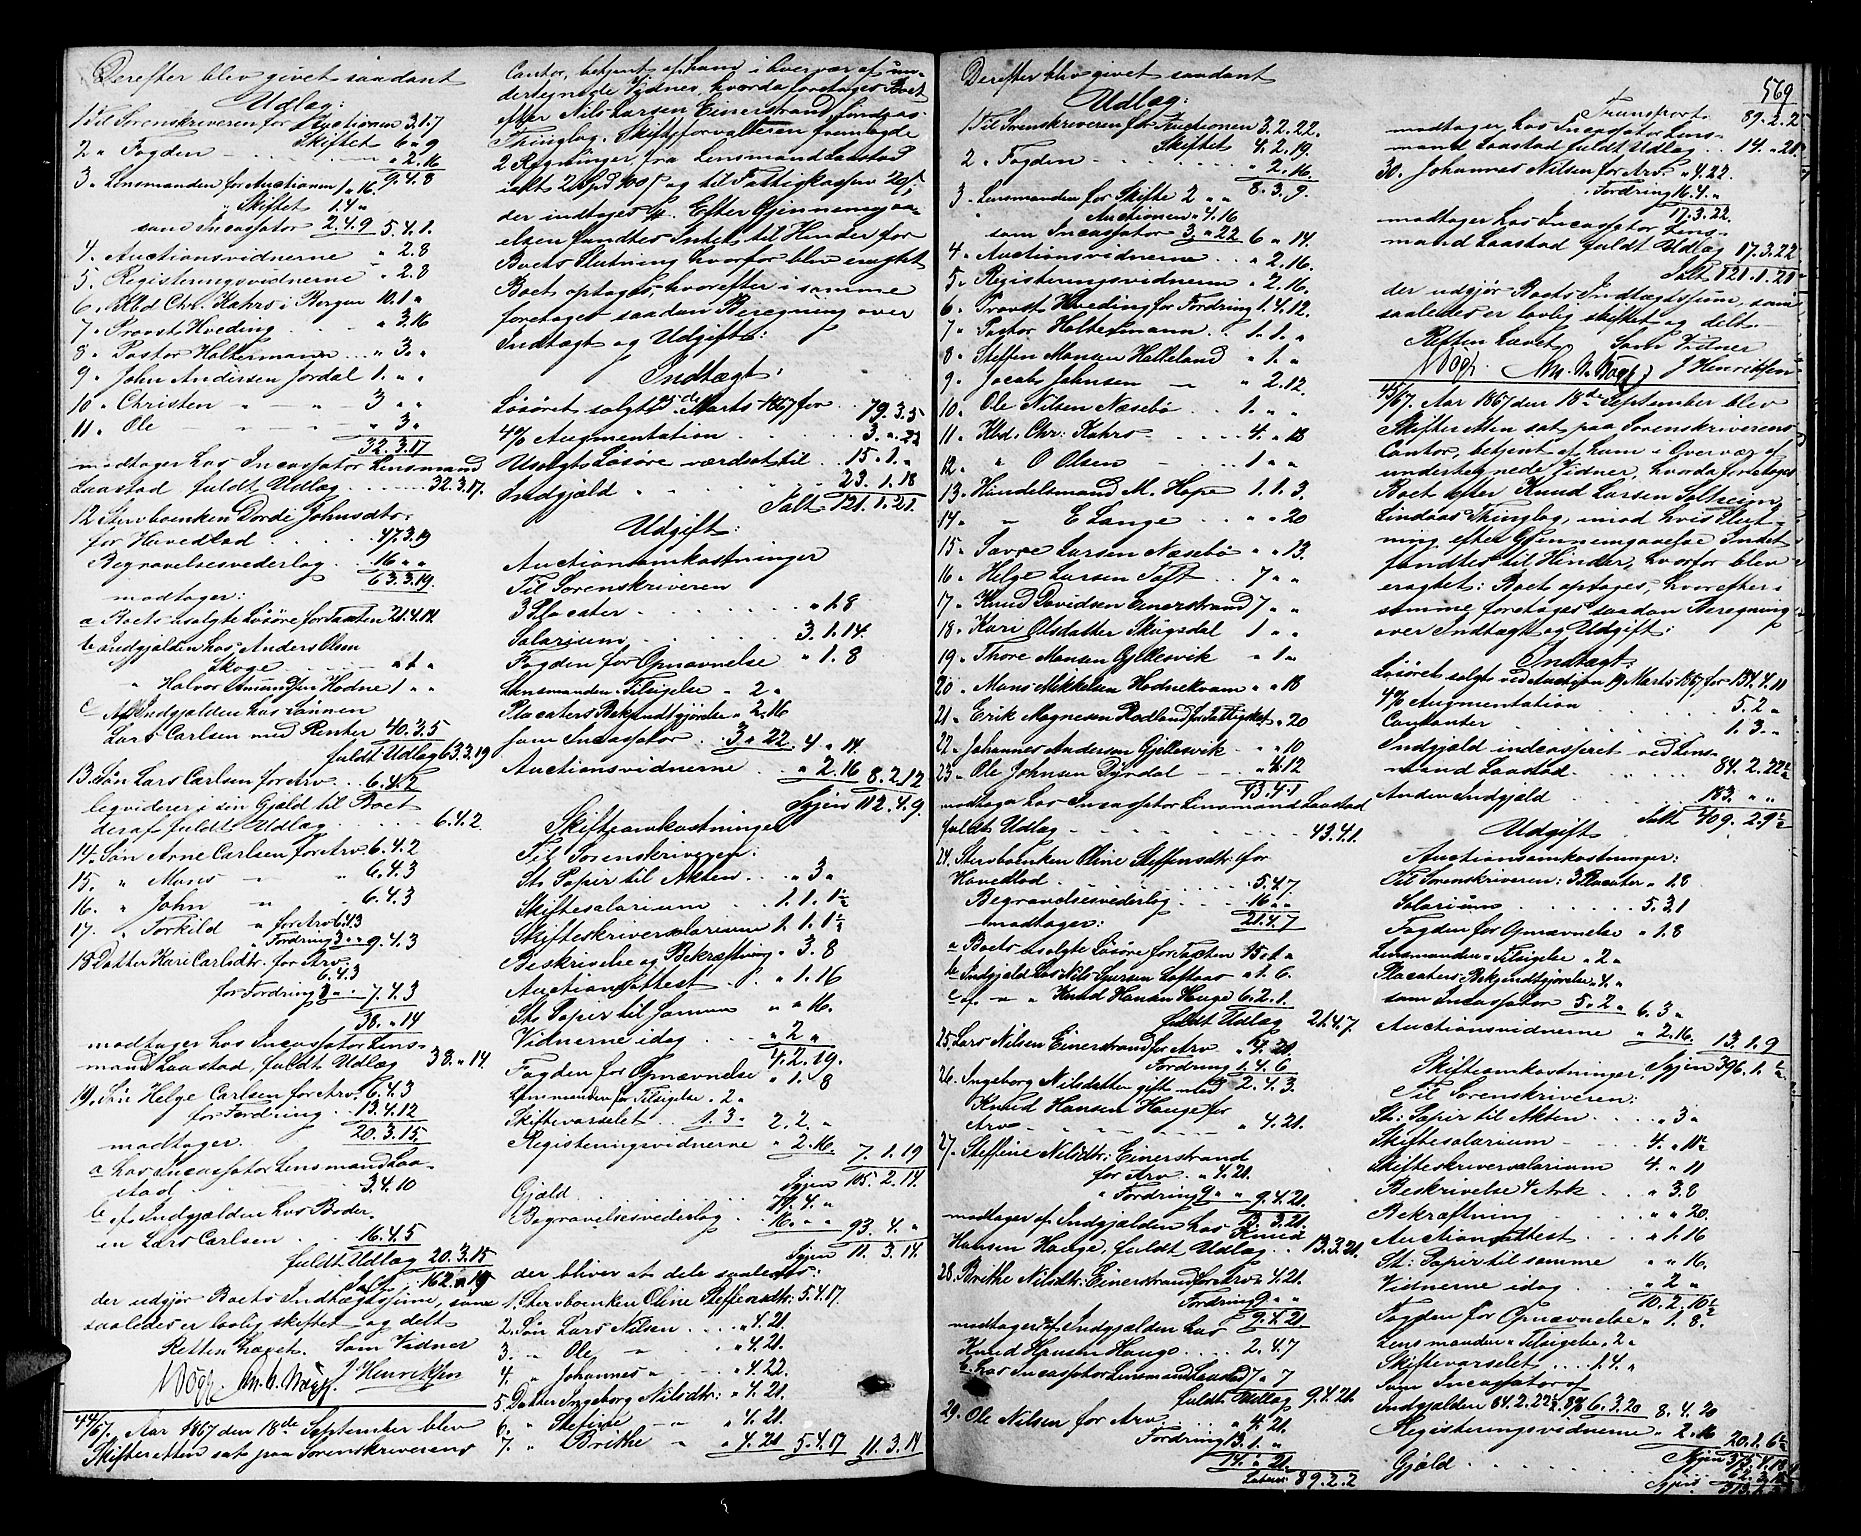 Derefter blev givet saadant
Udlæg:
1 Til Sorenskriveren for Auctionen 3.1.7
Skiftet 6 " 9
2 " Fogden - " 2.16
9.4.8
3 " Lensmanden for Auctionen 1 " 16
" Skiftet 1.4 "
som Incassator 2.4.9 5.4.1.
4 " Auctionsvidnerne " 2.8
5 " Registeringsvidnerne " 2.8
6 " Kbd Chr. Kahrs i Bergen 10.1 "
7 " Provst Hveding " 3.16
8 " Pastor Haltermann " 3. "
9 " John Andersen Jordal 1. " "
10 " Christen " — " 3 " "
11 " Ole — " 3 "
32.3.17
modtager hos Incassator Lensmand
Laastad fuldt Udlæg 32.3.17.
12 Stervboenken Dorde Johnsdtr.
for Hovedlod 47.3.19
Begravelsesvederlag 16 " "
63.3.19.
modtager:
a Boets usolgte Løsøre for Taxten 21.4.14
b Indgjælden hos Anders Olsen
Skoge " 1 "
" Halvor Amundsen Hodne 1 " "
c Af Indgjælden hos Sønnen
Lars Carlsen med Renter 40.3.5
fuldt Udlæg 63.3.19
13. Søn Lars Carlsen for Arv 6.4.2
liqviderer i sin Gjæld til Boet
deraf fuldt Udlæg 6.4.2.
14. Søn Arne Carlsen for Arv 6.4.2
15. " Mons — " 6.4.3
16. " John " " 6.4.3
17. " Torkild " for Arv 6.4.3
" Fordring 3 " " 9.4.3
18 Datter Kari Carlsdtr. for Arv
6.4.3
for Fordring 1 " " 7.4.3
38. " 14
modtager hos Incassator Lens-
mand Laastad, fuldt Udlæg 38. " 14.
19. Søn Helge Carlsen for Arv 6.4.3
for Fordring 13.4.12
20.3.15.
modtager.
a hos Incassator Lensmand Laa-
stad 3.4.10
b af Indgjælden hos Broder
en Lars Carlsen 16.4.5
fuldt Udlæg 20.3.15
Salt 162. " 19
der udgjør Boets Indtægtssum, som
saaledes er lovlig skiftet og delt
Retten hævet. Som Vidner
J Henriksen
44/67. Aar 1867 den 18de September blev
Skifteretten sat paa Sorenskriverens
Contor, betjent af ham i Overvær af un-
dertegnede Vidner, hvorda foretoges Boet
efter Nils Larsen Einerstrand, Lindaas
Thinglag. Skifteforvalteren fremlagde
2 Regninger, fra Lensmand Laastad
der indtages Efter Gjennemgaa-
elsen fandtes Intet til Hinder for
Boets Slutning, hvorfor blev eragtet
Boet optaget, hvorefter i samme
foretoges saadan Beregning over
Indtægt og Udgift:
Indtægt:
Løsøret solgt 25de Marts 1867 for 79.3.5
4% Augmentation 3. " 22
Usolgt Løsøre værdsat til 15.1. "
Indgjæld " 23.1.18
Salt 121.1.21.
Udgift:
Auctionsomkostninger
Til Sorenskriveren
3 Placater " 1.8
Salarium 3.1.14.
Fogden for Opnævnelse " 1.8
Lensmanden " Tilsigelse " 2 "
Placaters Bekjendtgjørelse " 2.16
som Incassator 3 " 22 4 " 14.
Auctionsvidnerne " 2.16 8.2.12
Igjen 112.4.9.
Skifteomkostninger
Til Sorenskriveren:
St. Papir til Akten " 3 "
Skiftesalarium 1.1.1½
Skifteskriversalarium 1.1.1½
Beskrivelse og Bekræftning " 3.8
Auctionsattest " 1.16
St. Papir til samme " " 16.
Vidnerne idag " 2 "
4.2.19.
Fogden for Opnævnelse " 1.8
Lensmanden for Tilsigelse " 2 "
Skiftevarselet 1.3 " 2.2. "
Registeringsvidnerne " 2.16. 7.1.19
Igjen 105.2.14.
Gjæld 77.4. "
Begravelsesvederlag 16. " " 93.4. "
Igjen 11.3.14.
der bliver at dele saaledes:
1. Stervboenken Oline Steffensdtr: 5.4.17.
2. Søn Lars Nilsen " 4.21.
3. " Ole " " 4.21.
4. " Johannes " " 4.22.
5 Datter Ingeborg Nilsdtr: " 4.21.
6. " Stefine " " 4.21.
7. " Brithe " " 4.21 5.4.17 11.3.14
569
Derefter blev givet saadant
Udlæg:
1 Til Sorenskriveren for Auctionen 3.2.22.
Skiftet 4.2.19.
2 " Fogden " 2.16.
8.3.9.
3 " Lensmanden for Skifte 2 " "
" Auctionen " 4.16
som Incassator 3. " 22 6 " 14.
4 " Auctionsvidnerne " 2.16.
5 " Registeringsvidnerne " 2.16.
6 " Provst Hveding for Fordring 1.4.12.
7 " Pastor Haltermann 1.1. "
8 " Steffen Monsen Halleland " 1 "
9 " Jacob Johnsen — " 2.12.
10 " Ole Nilsen Næsebø 1. " "
11 " Kbd. Chr. Kahrs 4. " 18
12 " " O Olsen 1 " "
13 " Handelsmand M. Hope 1.1.3.
14 " " E Lange " " 20
15 " Lars Larsen Næsebø " " 13.
16 " Helge Larsen Toft 7 " "
17 " Knud Davidsen Einerstrand 7 " "
18 " Kari Olsdatter Skugsdal 1 " "
19 " Thore Monsen Gjellesvik " 1 "
20 " Mons Mikkelsen Hodnekvam " " 18
21 " Erik Magnesen Rodland for Fattigkas. " 20
22 " Johannes Andersen Gjellesvik " " 10
23 " Ole Johnsen Dyrdal " 4.12
43.4.1
modtager hos Incassator Lensmand Laastad
fuldt Udlæg 43.4.1.
24. Stervboenken Oline Steffensdtr. for
Hovedlod 5.4.7.
Begravelsesvederlag 16 " "
modtager: 21.4.7
a Boets usolgte Løsøre for Taxten 15.1 "
c af " " Knud Hansen Hauge 6.2.1.
fuldt Udlæg 21.4.7.
25. Lars Nilsen Einerstrand for Arv " 4.21.
Fordring 1.4.6
26. Ingeborg Nilsdatter gift med 2.4.3.
Knud Hansen Hauge for
Arv " 4.21.
27. Steffine Nilsdtr: Einerstrand
for Arv " 4.21.
" Fordring 9 " " 9.4.21.
modtager af Indgjælden hos Knud 13.3.21.
Hansen Hauge, fuldt Udlæg 13.3.21.
28. Brithe Nilsdtr: Einerstrand for Arv " 4.21.
Fordring 9 " "
9.4.21
modtager af Indgjælden hos
Knud Hansen Hauge 2.4.7
b. hos Incassator Lensmand Laastad 7 " 7
fuldt Udlæg 9.4.21.
29. Ole Nilsen for Arv " 4.21.
Fordring 13.1. "
14. " 21.
Latus 89.2.2
Transport 89.2.2
modtager hos Incassator Lens-
mand Laastad fuldt Udlæg 14. " 21
30. Johannes Nilsen for Arv " 4.22.
" Fordring 16.4. "
17.3.22.
modtager hos Incassator Lens-
mand Laastad fuldt Udlæg 17.3.22
Salt 121.1.21
der udgjør Boets Indtægtssum, som
saaledes er lovlig skiftet og delt.
Retten hævet. Som Vidner
J Henriksen
45/67. Aar 1867 den 18de September blev
Skifteretten sat paa Sorenskriverens
Contor, betjent af ham i Overvær af
undertegnede Vidner, hvorda foretoges
Boet efter Knud Larsen Soltveim
Lindaas Thinglag, imod hvis Slut-
ning efter Gjennemgaaelse Intet
fandtes til Hinder, hvorfor blev
eragtet: Boet optages, hvorefter i
samme foretoges saadan Beregning
over Indtægt og Udgift:
Indtægt:
Løsøret solgt ved Auction 19 Marts 1867 for 134.4.11
4% Augmentation 5.2 "
Contanter 1.3. "
Indgjæld incasseret ved Lens-
mand Laastad 84.2.22½
Anden Indgjæld 183. " "
Salt 409.2.9½
Udgift
Auctionsomkostninger:
Til Sorenskriveren: 3 Placater " 1.8
Salarium 5.3.1
Fogden for Opnævnelse " 1.8
Lensmanden " Tilsigelse " 2 "
Placaters Bekjendtgjørelse " 4. "
som Incassator 5.2 " 6.3 "
Auctionsvidnerne " 2.16. 13.1.9
Skifteomkostninger. Igjen 396.1. "½
Til Sorenskriveren:
St: Papir til Akten " 3 "
Skiftesalarium 4. " 11
Skifteskriversalarium 4. " 11
Beskrivelse 4 Ark " 3.8
Bekræftning " " 20.
Auctionsattest " 1.16
St: Papir til samme " " 16.
Vidnerne idag " 2 "
10.2.10½
Fogden for Opnævnelse " 1.8.
Lensmanden " Tilsigelse " 2 "
Skiftevarselet 1.4. "
Som Incassator af
Indgjælden 84.2.22½ 8% 6.3.20 8.4.20
Registeringsvidnerne " 2.16 20.1.6½
Gjæld